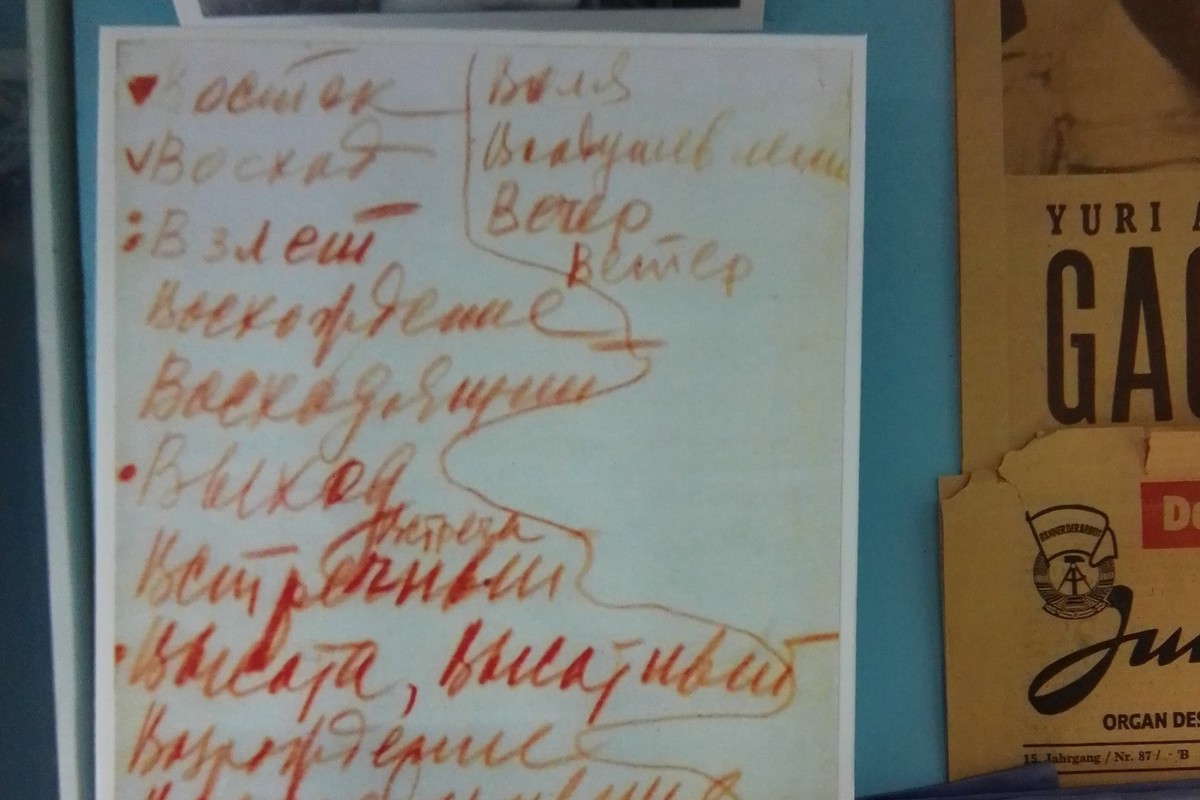 Восток
Восход
Взлет
Восхождение
Восходящий
Выход
Встреча
Встречный
Высота, Высотный
Возрождение
Воля
Вечер
Ветер
YURI A
GAG
De
BANNER DER ARBEIT
Jun
ORGAN DES
15. Jahrgang / Nr. 87 / · B